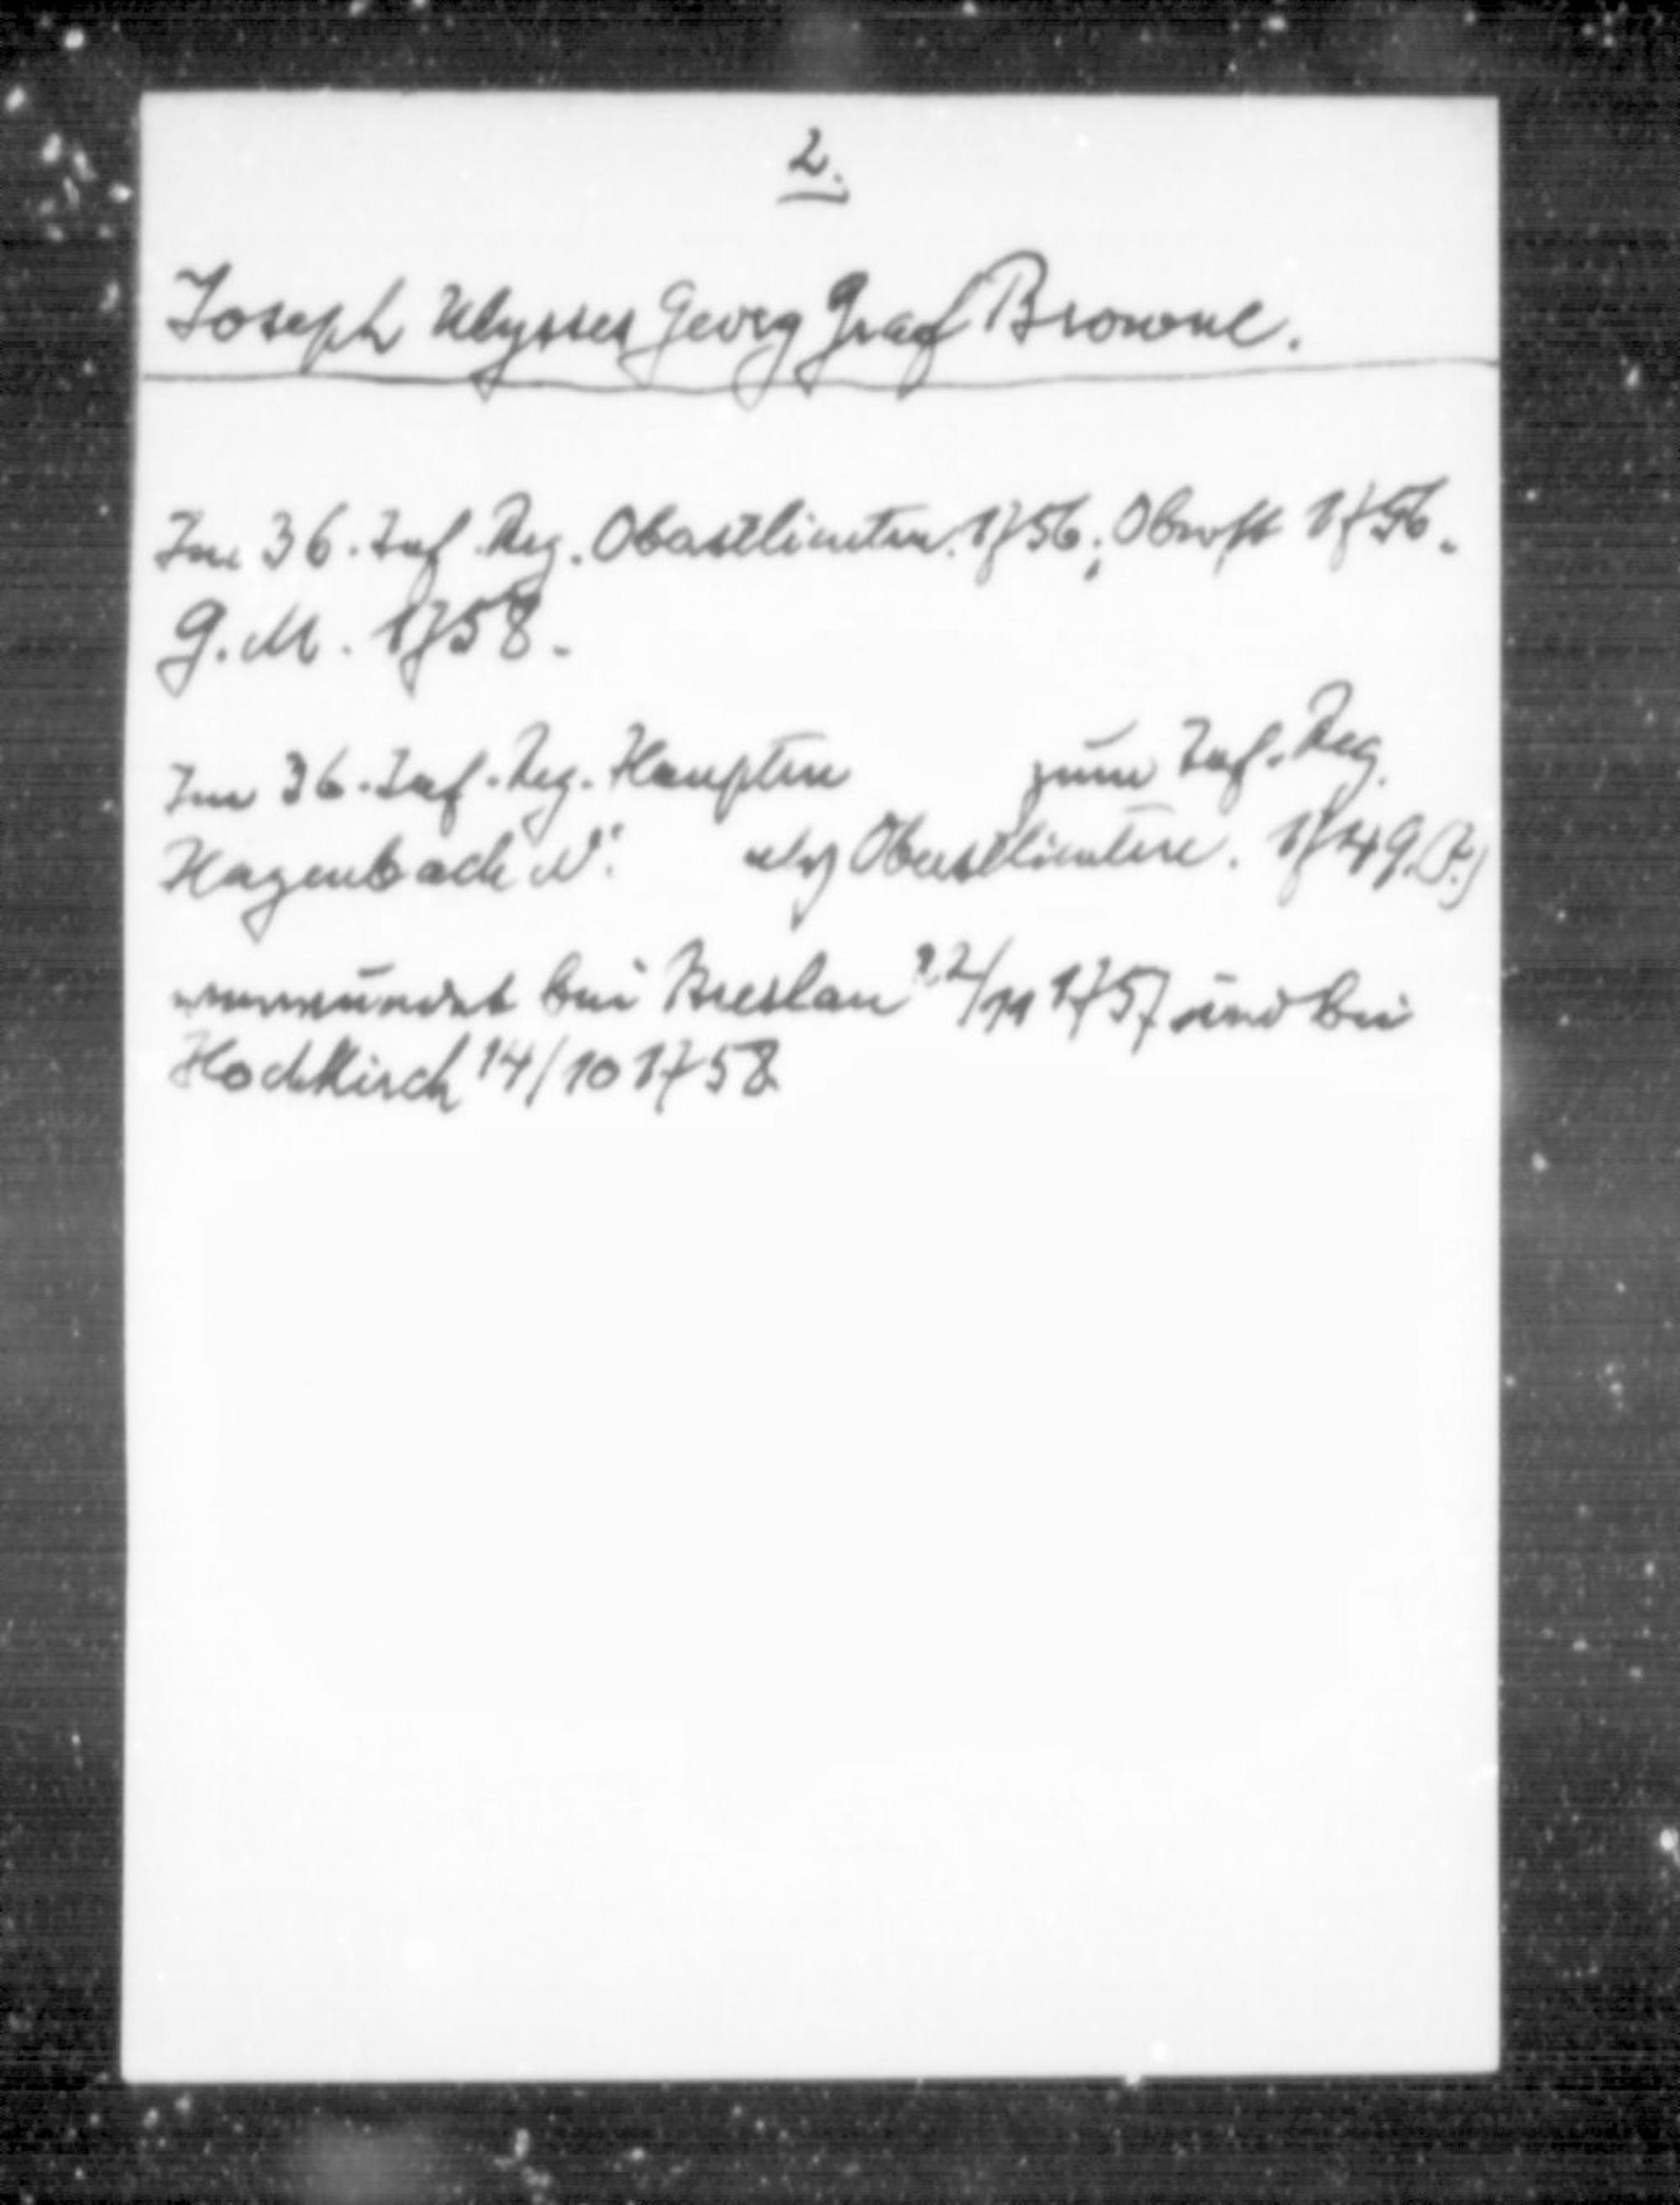 2.
Joseph Ulysses Georg Graf Browne.
Im 36. Inf. Reg. Oberstlieuten. 1756; Oberst 1756.
G. M. 1758.
Im 36. Inf. Reg. Hauptm zum Inf. Reg.
Hagenbach N: als Oberstlieuten. 1749
verwundet bei Breslau 22/11 1757 und bei
Hochkirch 14/10 1758